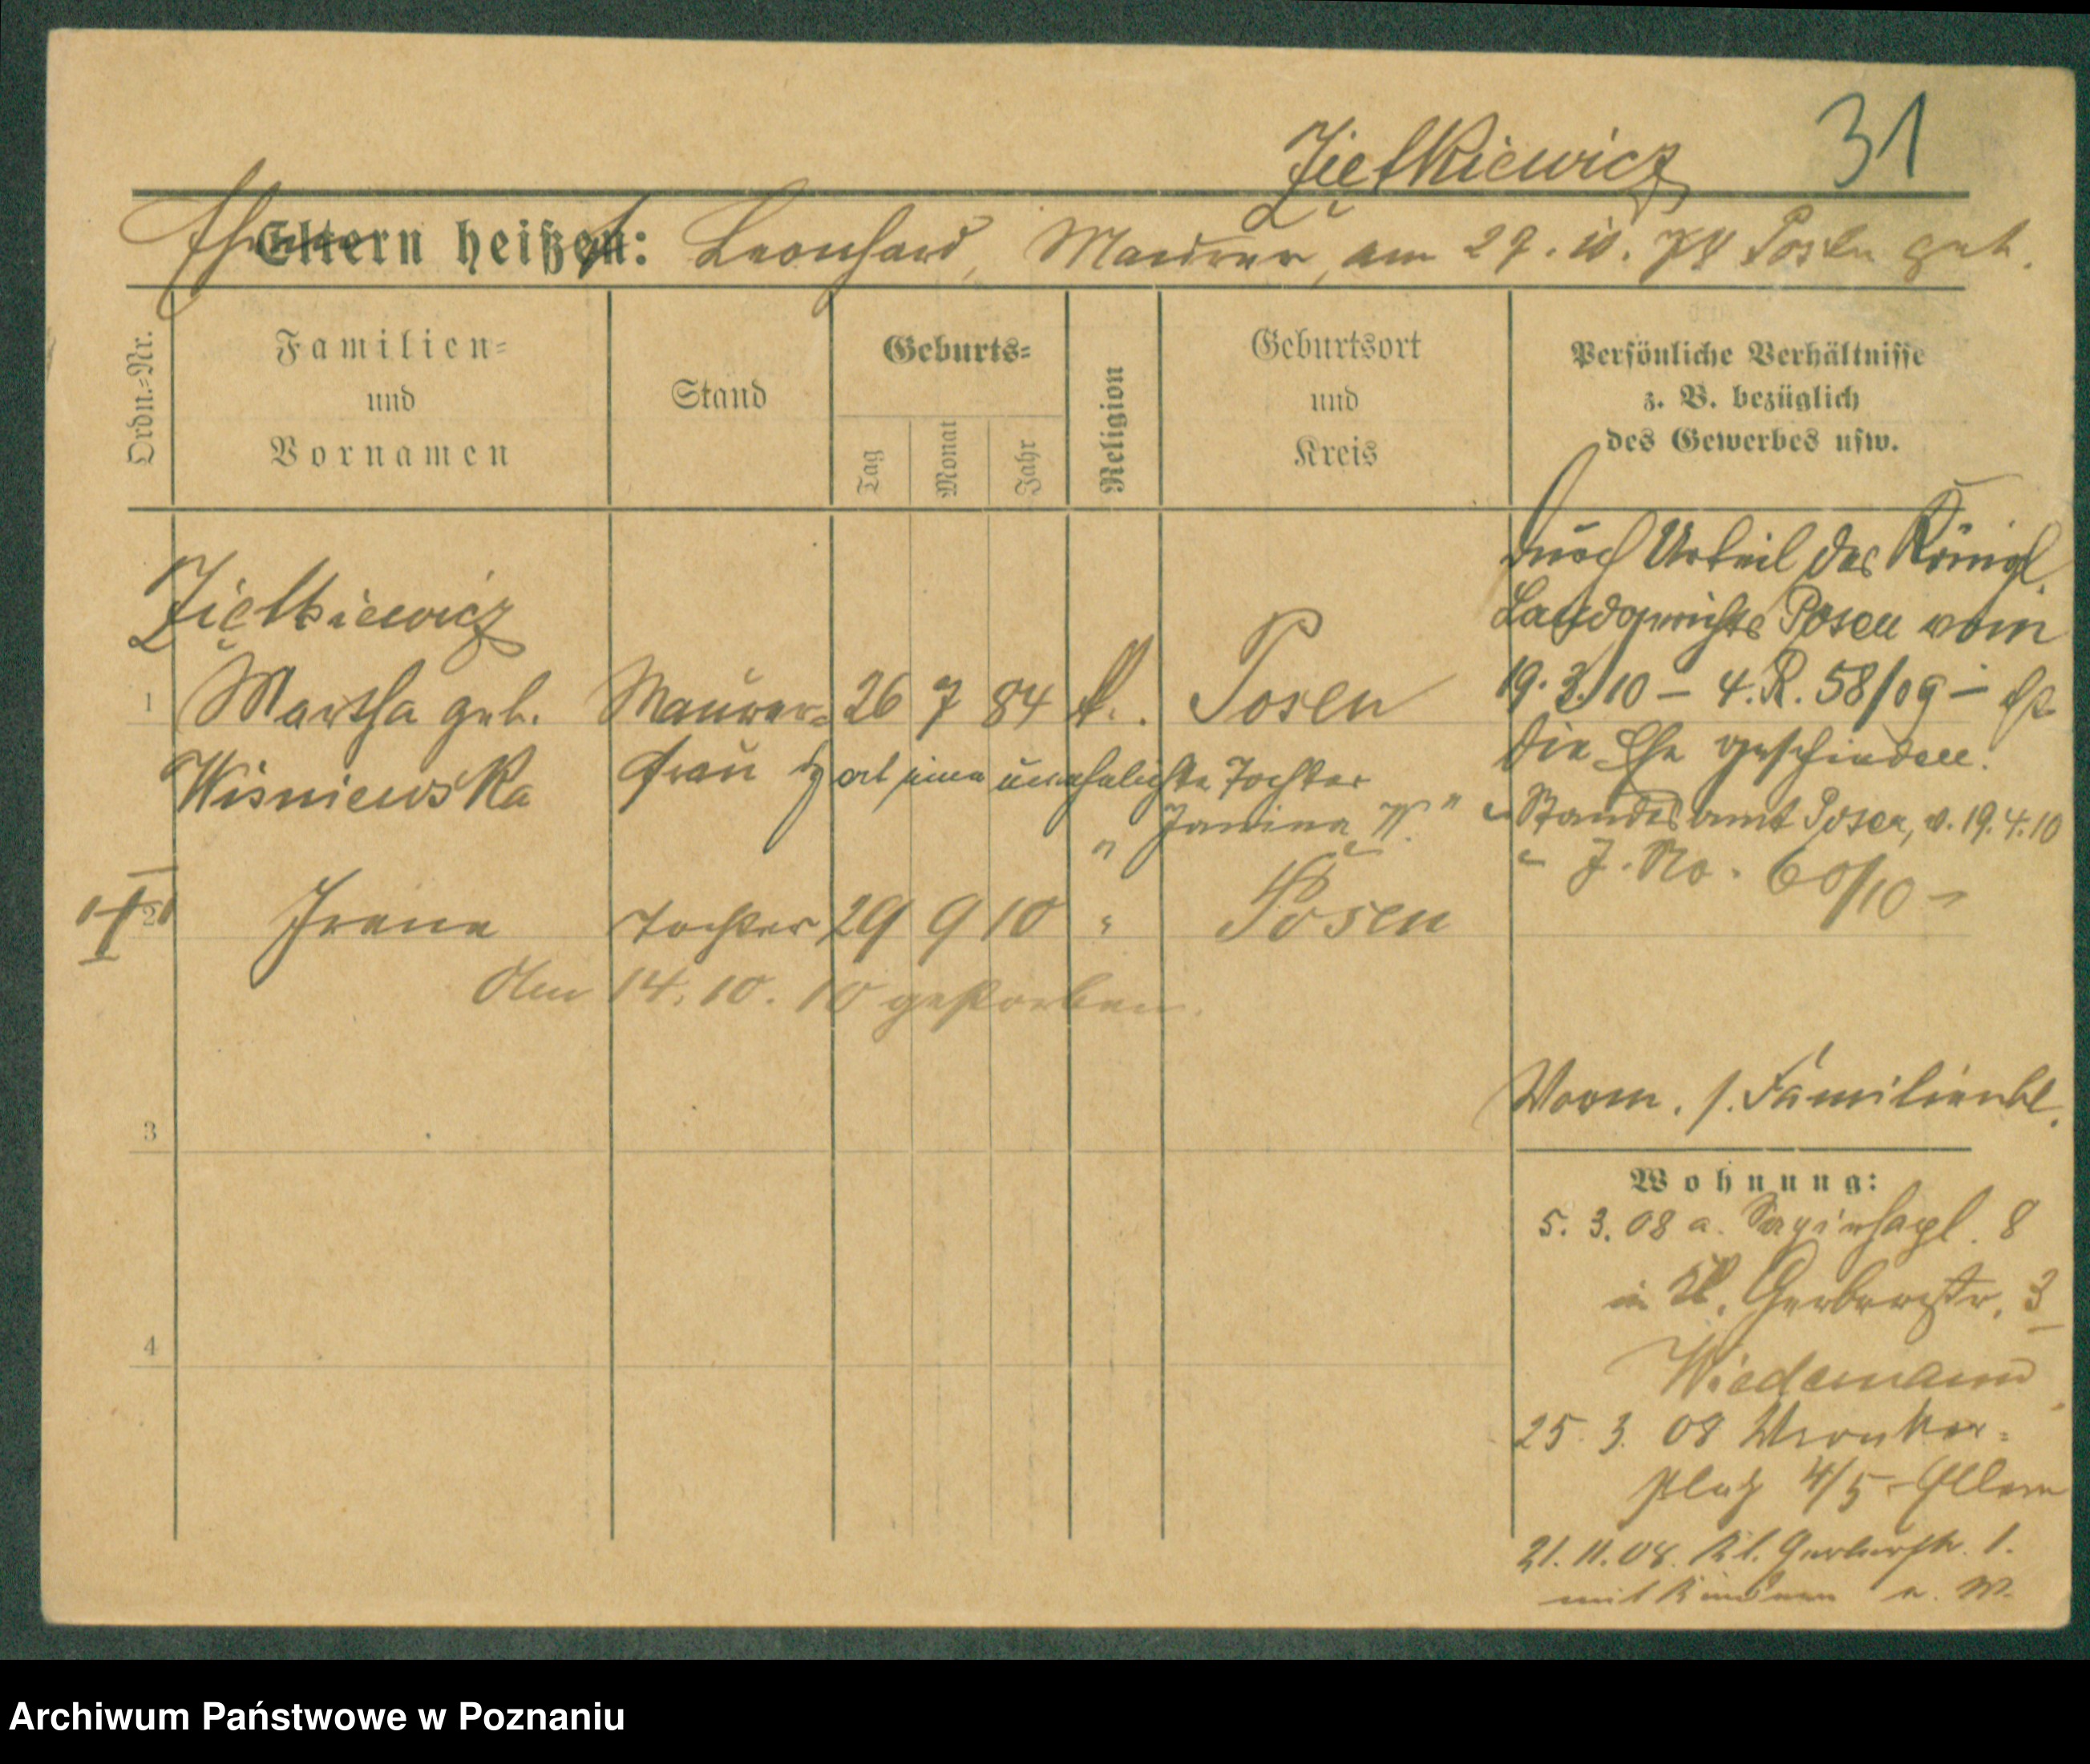 31
Ziętkiewicz
Eltern heißen: Leonhard, Maurer, am 29. 10. 78 Posen geb.
Ordn.-Nr.
Familien-
und
Vornamen
Stand
Geburts-
Tag
Monat
Jahr
Religion
Geburtsort
und
Kreis
Persönliche Verhältnisse
z. B. bezüglich
des Gewerbes usw.
Ziętkiewicz
1 Martha geb. Maurer- 26 7 84 k. Posen
Wisniewska frau hat eine uneheliche Tochter
"Janina W."
2 Irene Tochter 29 9 10 " Posen
Am 14. 10. 10 gestorben.
3
4
Durch Urteil des Königl.
Landgerichts Posen vom
19. 3. 10 – 4. R. 58/09 – ist
die Ehe geschieden.
Standesamt Posen, v. 19. 4. 10
J. No. 60/10 –
Vorm. s. Familienbl.
Wohnung:
5. 3. 08 a. Sapiehapl. 8
in Kl. Gerberstr. 3
Wiedemann
25. 3. 08 Wronker-
platz 4/5 Eltern
21. 11. 08. Kl. Gerberstr. 1.
mit Kindern a. W.
Archiwum Państwowe w Poznaniu